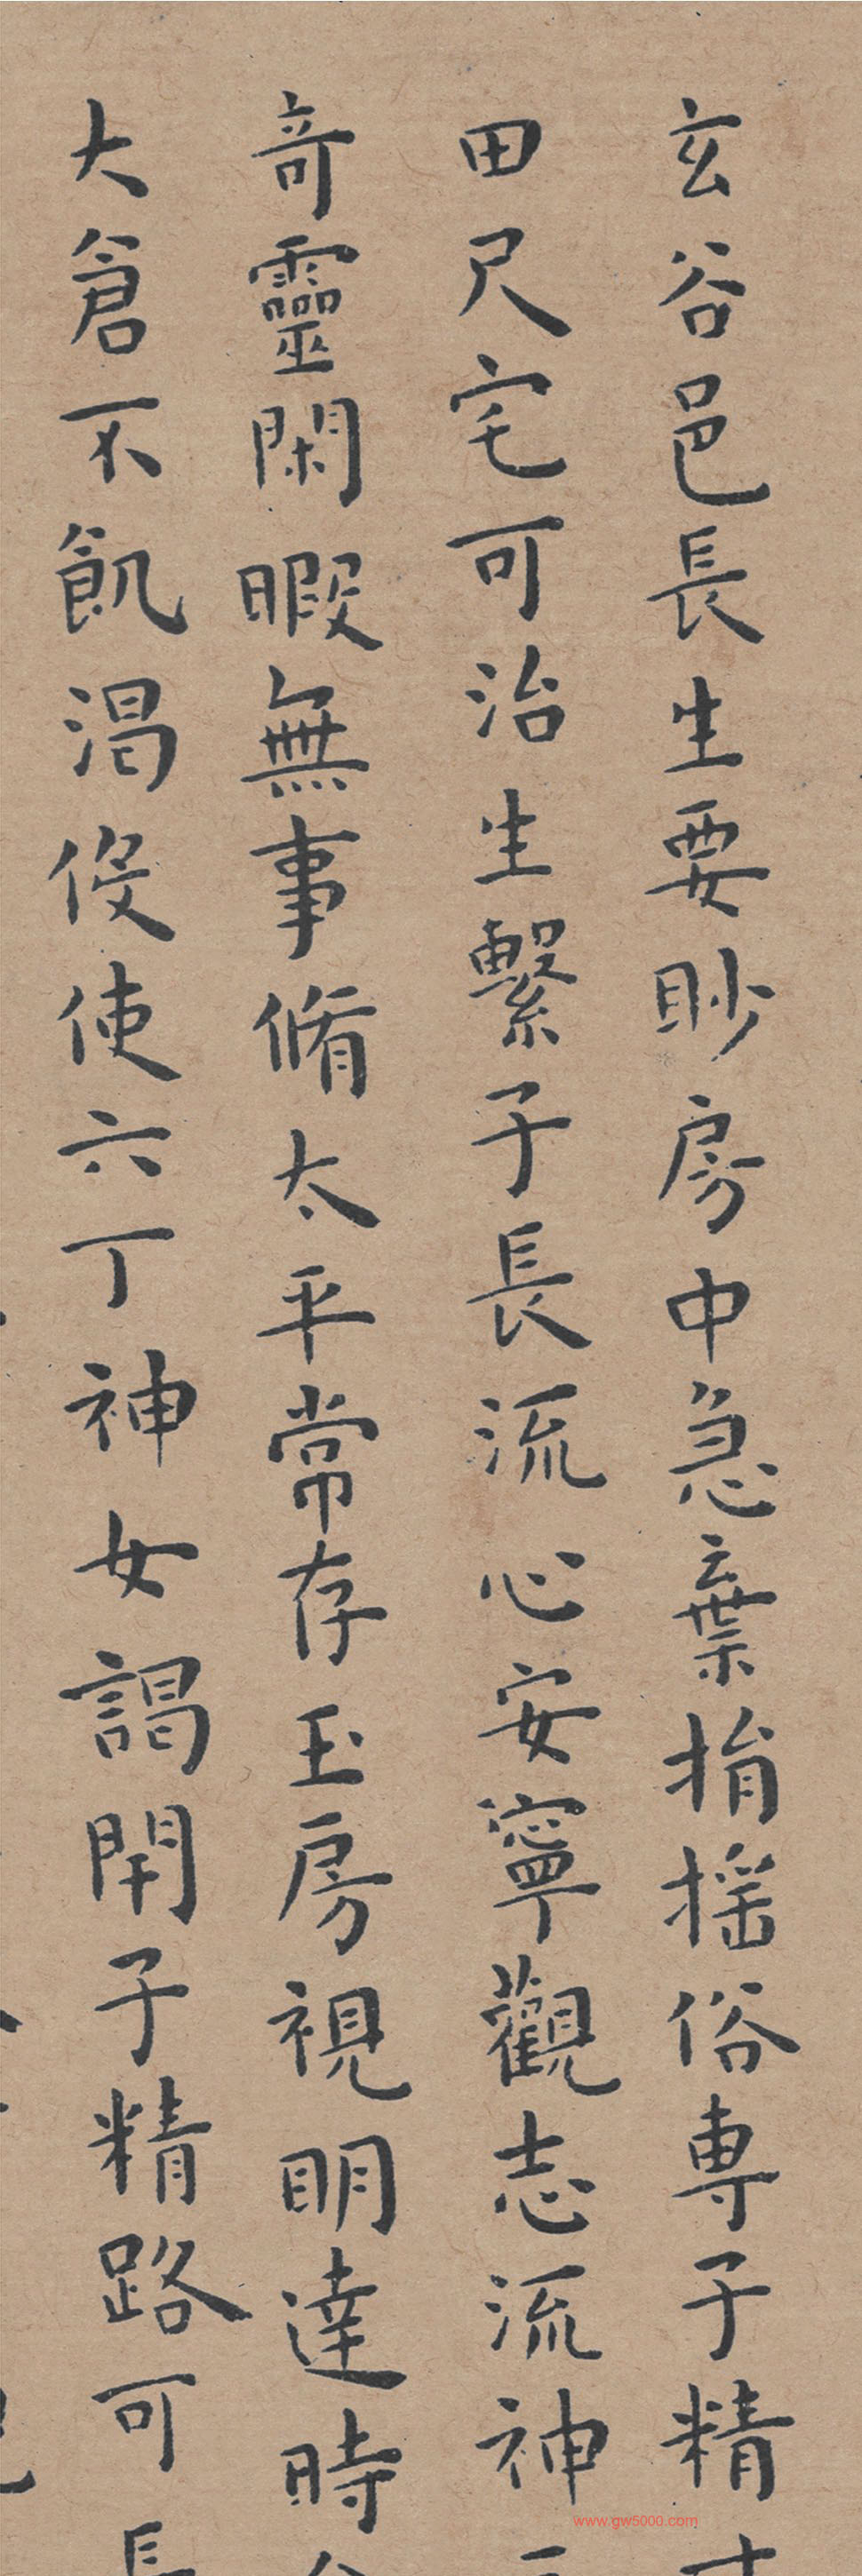 玄谷邑長生要眇房中急棄捐搖俗專子精寸
田尺宅可治生繫子長流心安寧觀志流神三
奇靈閑暇無事脩太平常存玉房視明達時念
大倉不飢渴役使六丁神女謁閇子精路可長
www.gw5000.com